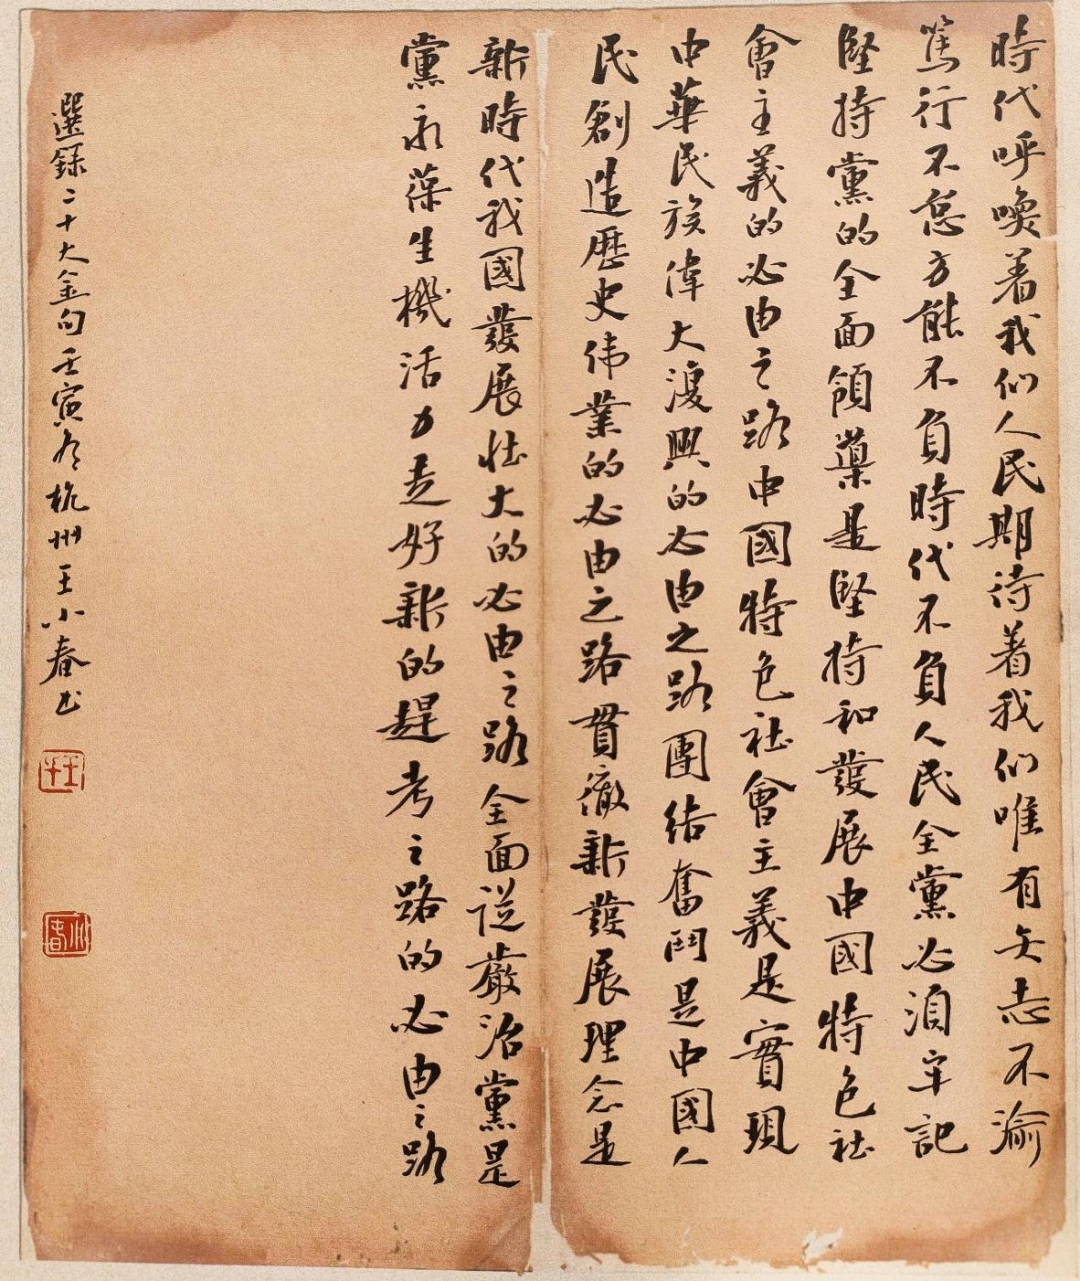 時代呼喚着我们人民期待着我们唯有矢志不渝
篤行不怠方能不負時代不負人民全黨必須牢記
堅持黨的全面領導是堅持和發展中國特色社
會主義的必由之路中國特色社會主義是實現
中華民族偉大復興的必由之路團结奮鬥是中國人
民創造歷史伟業的必由之路貫徹新發展理念是
新時代我國發展壮大的必由之路全面從嚴治黨是
黨永葆生機活力走好新的趕考之路的必由之路
選錄二十大金句壬寅冬杭州王小春书
王
小春